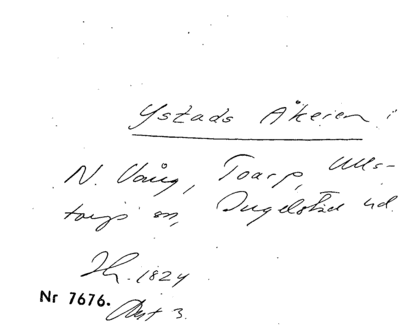 Ystads Åkeien i
N. Vång, Toarp, Ulls-
torps sn, Ingelstad hd.
Th. 1824
Nr 7676.
Avst 3.